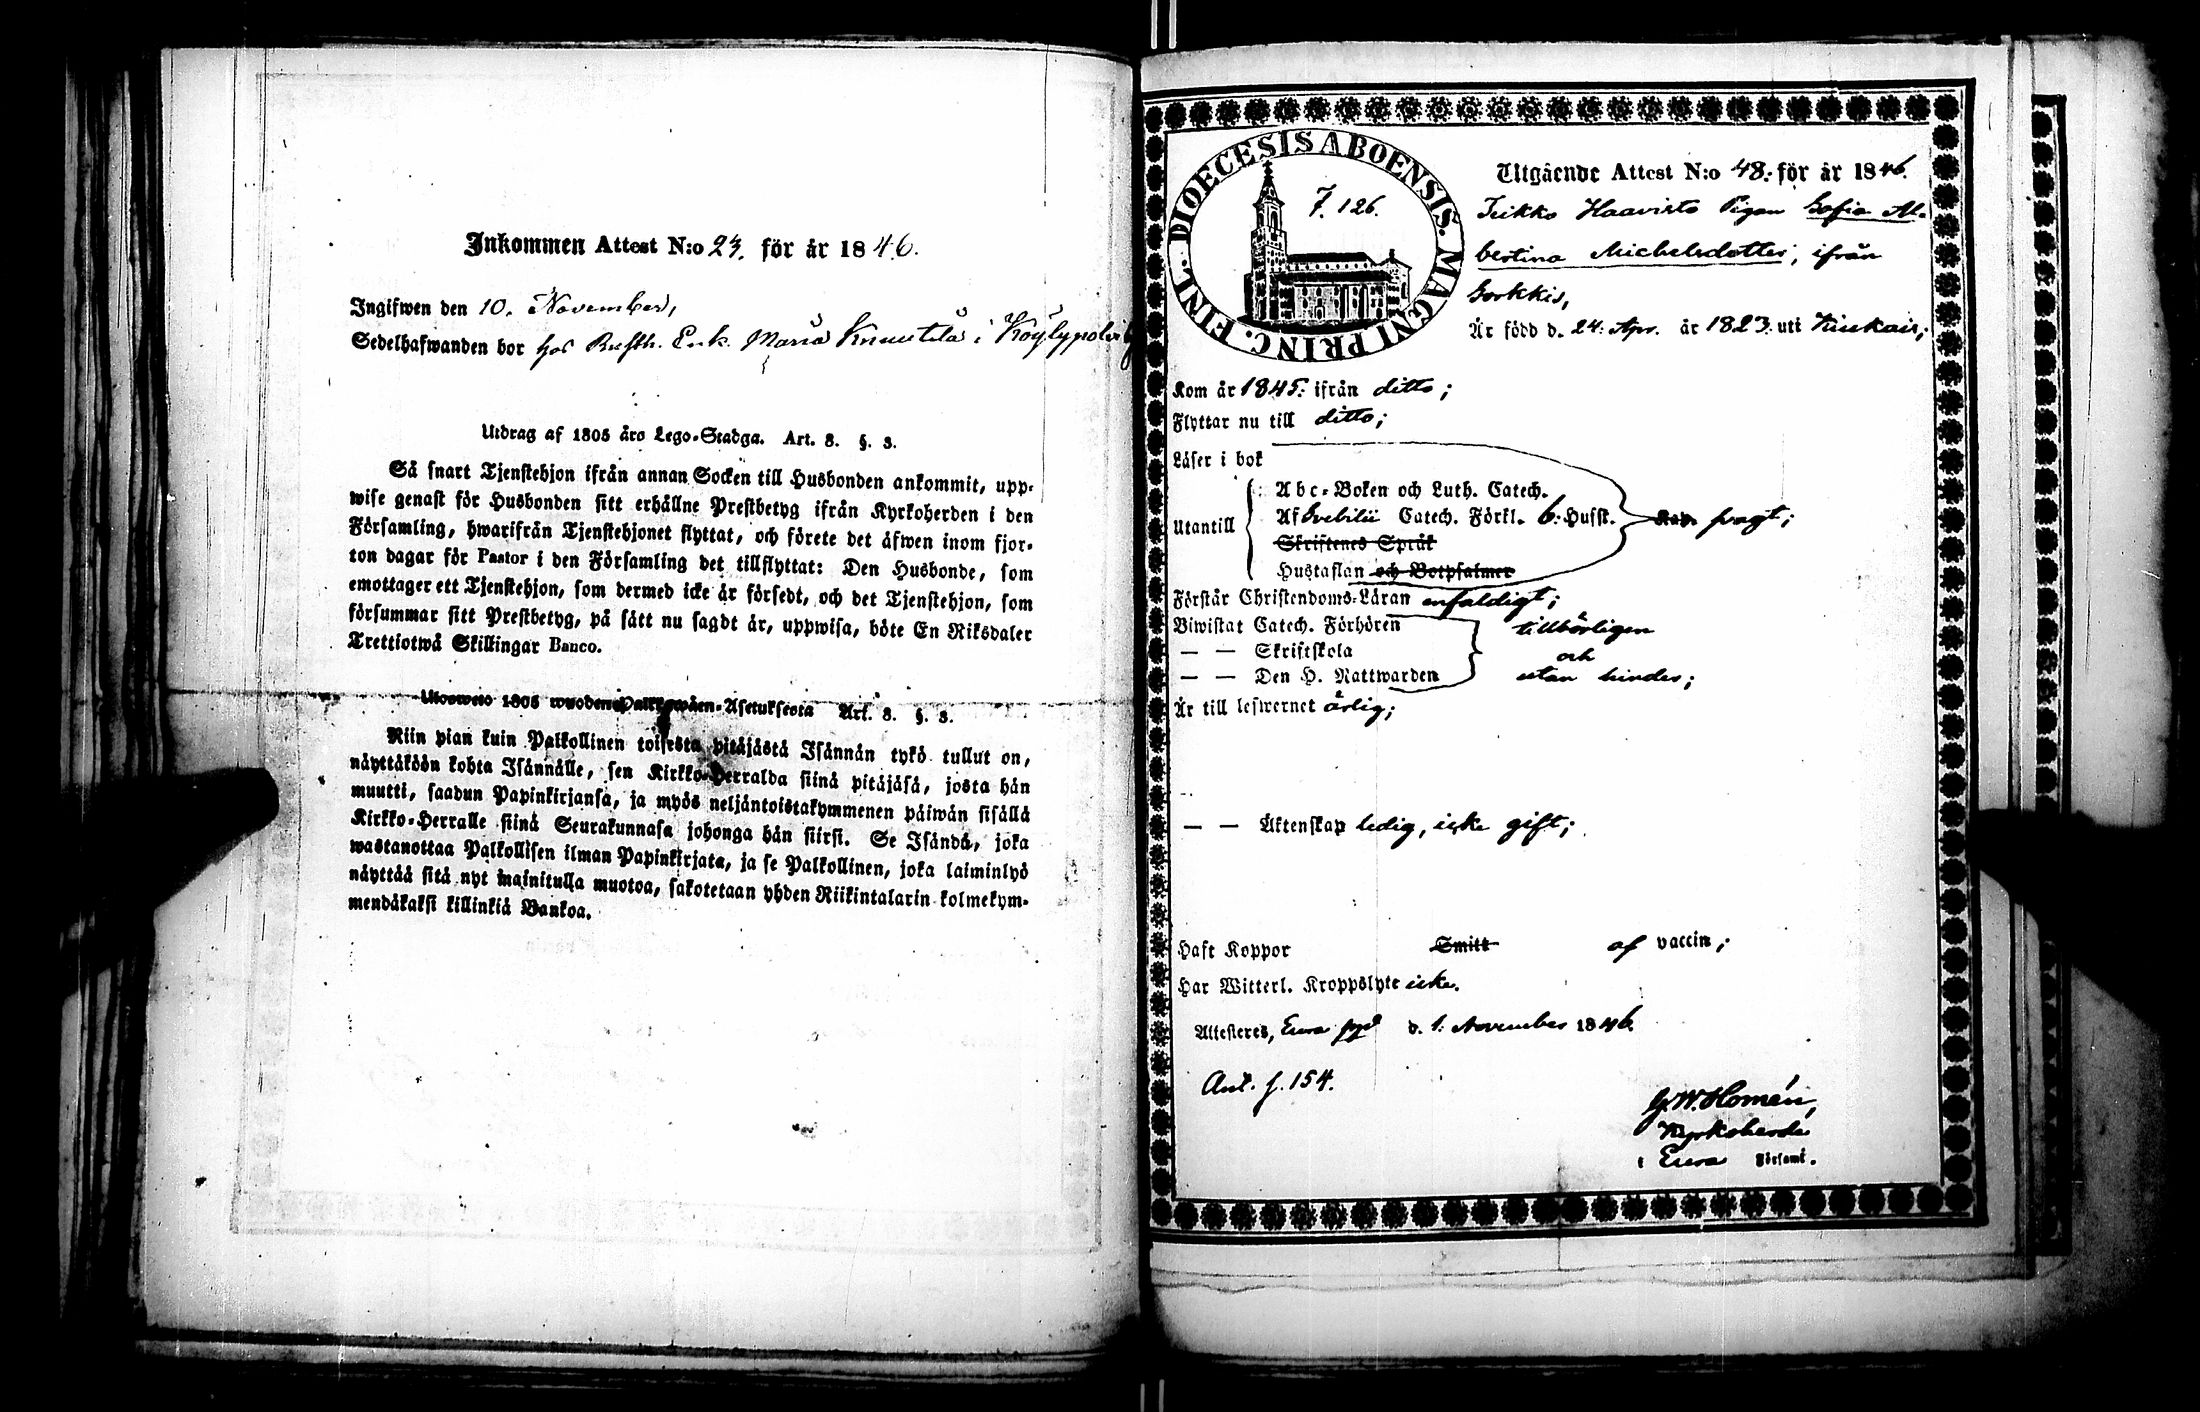 Inkommen Attest N:o 23. för år 1846.
Ingifwen den 10. November,
Sedelhafwanden bor hos Rusth. Enk. Maria Knuutila i Köylypolviby
Utdrag af 1805 års Lego-Stadga. Art. 8. §. 3.
Så snart Tjenstehjon ifrån annan Socken till Husbonden ankommit, upp-
wise genast för Husbonden sitt erhållne Prestbetyg ifrån Kyrkoherden i den
Församling, hwarifrån Tjenstehjonet flyttat, och förete det äfwen inom fjor-
ton dagar för Pastor i den Församling det tillflyttat: Den Husbonde, som
emottager ett Tjenstehjon, som dermed icke är försedt, och det Tjenstehjon, som
försummar sitt Prestbetyg, på sätt nu sagdt är, uppwisa, böte En Riksdaler
Trettiotwå Skillingar Banco.
Ulosweto 1805 wuoden Palkkawäen-Asetuksesta Art. 8. §. 3.
Niin pian kuin Palkollinen toisesta pitäjästä Isännän tykö tullut on,
näyttäköön kohta Isännälle, sen Kirkko-Herralda siinä pitäjäsä, josta hän
muutti, saadun Papinkirjansa, ja myös neljäntoistakymmenen päiwän sisällä
Kirkko-Herralle siinä Seurakunnasa johonga hän siirsi. Se Isändä, joka
wastanottaa Palkollisen ilman Papinkirjata, ja se Palkollinen, joka laiminlyö
näyttää sitä nyt mainitulla muotoa, sakotetaan yhden Riikintalarin kolmekym-
mendäkaksi killinkiä Bankoa.
DIOECESIS ABOENSIS. MAGNI PRINC. FINL.
7. 126.
Utgående Attest N:o 48. för år 1846.
Haavisto Pigan Sofia Al-
bertina Michelsdotter, ifrån
År född d. 24: Apr. år 1823. uti Kiukais;
Kom år 1845: ifrån ditto;
Flyttar nu till ditto;
Läser i bok
Abc-Boken och Luth. Catech.
Utantill Af Svebilii Catech. Förkl. 6: Hufst. svagt;
Skriftenes Språk
Hustaflan och Botpsalmer
Förstår Christendoms-Läran enfaldigt;
Biwistat Catech. Förhören tillbörligen
— — Skriftskola och
— — Den H. Nattwarden utan hinder;
Är till lefwernet ärlig;
— — Äktenskap ledig, icke gift;
Haft Koppor Smitt af vaccin;
Har Witterl. Kroppslyte icke.
Attesteres, Eura d. 1. November 1846.
Ant. f. 154.
G. W. Homén,
Kyrkoherde
i Eura Församl.